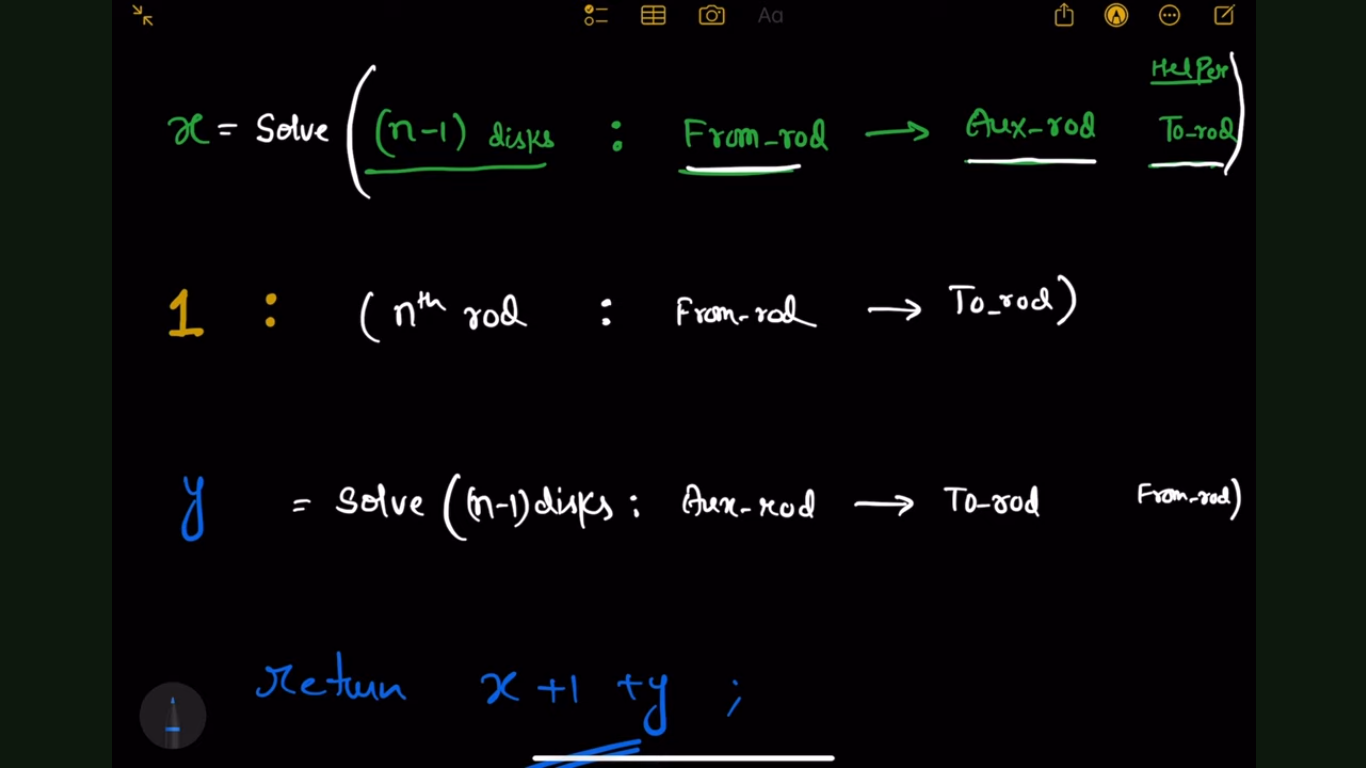 Aa
Helper
x = Solve ( (n-1) disks : From_rod → Aux-rod To_rod )
1 : ( nth rod : From-rod → To_rod )
y = Solve ( (n-1) disks : Aux-rod → To-rod From-rod )
return x +1 +y ;